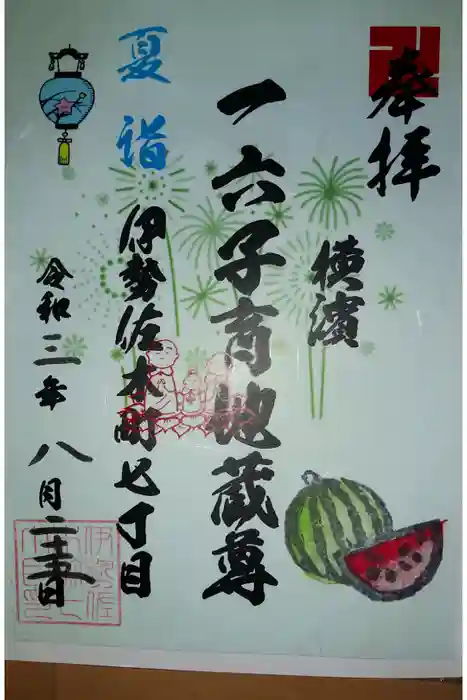 奉拝
横濱
一六子育地蔵尊
夏詣
伊勢佐木町七丁目
令和三年八月二十五日